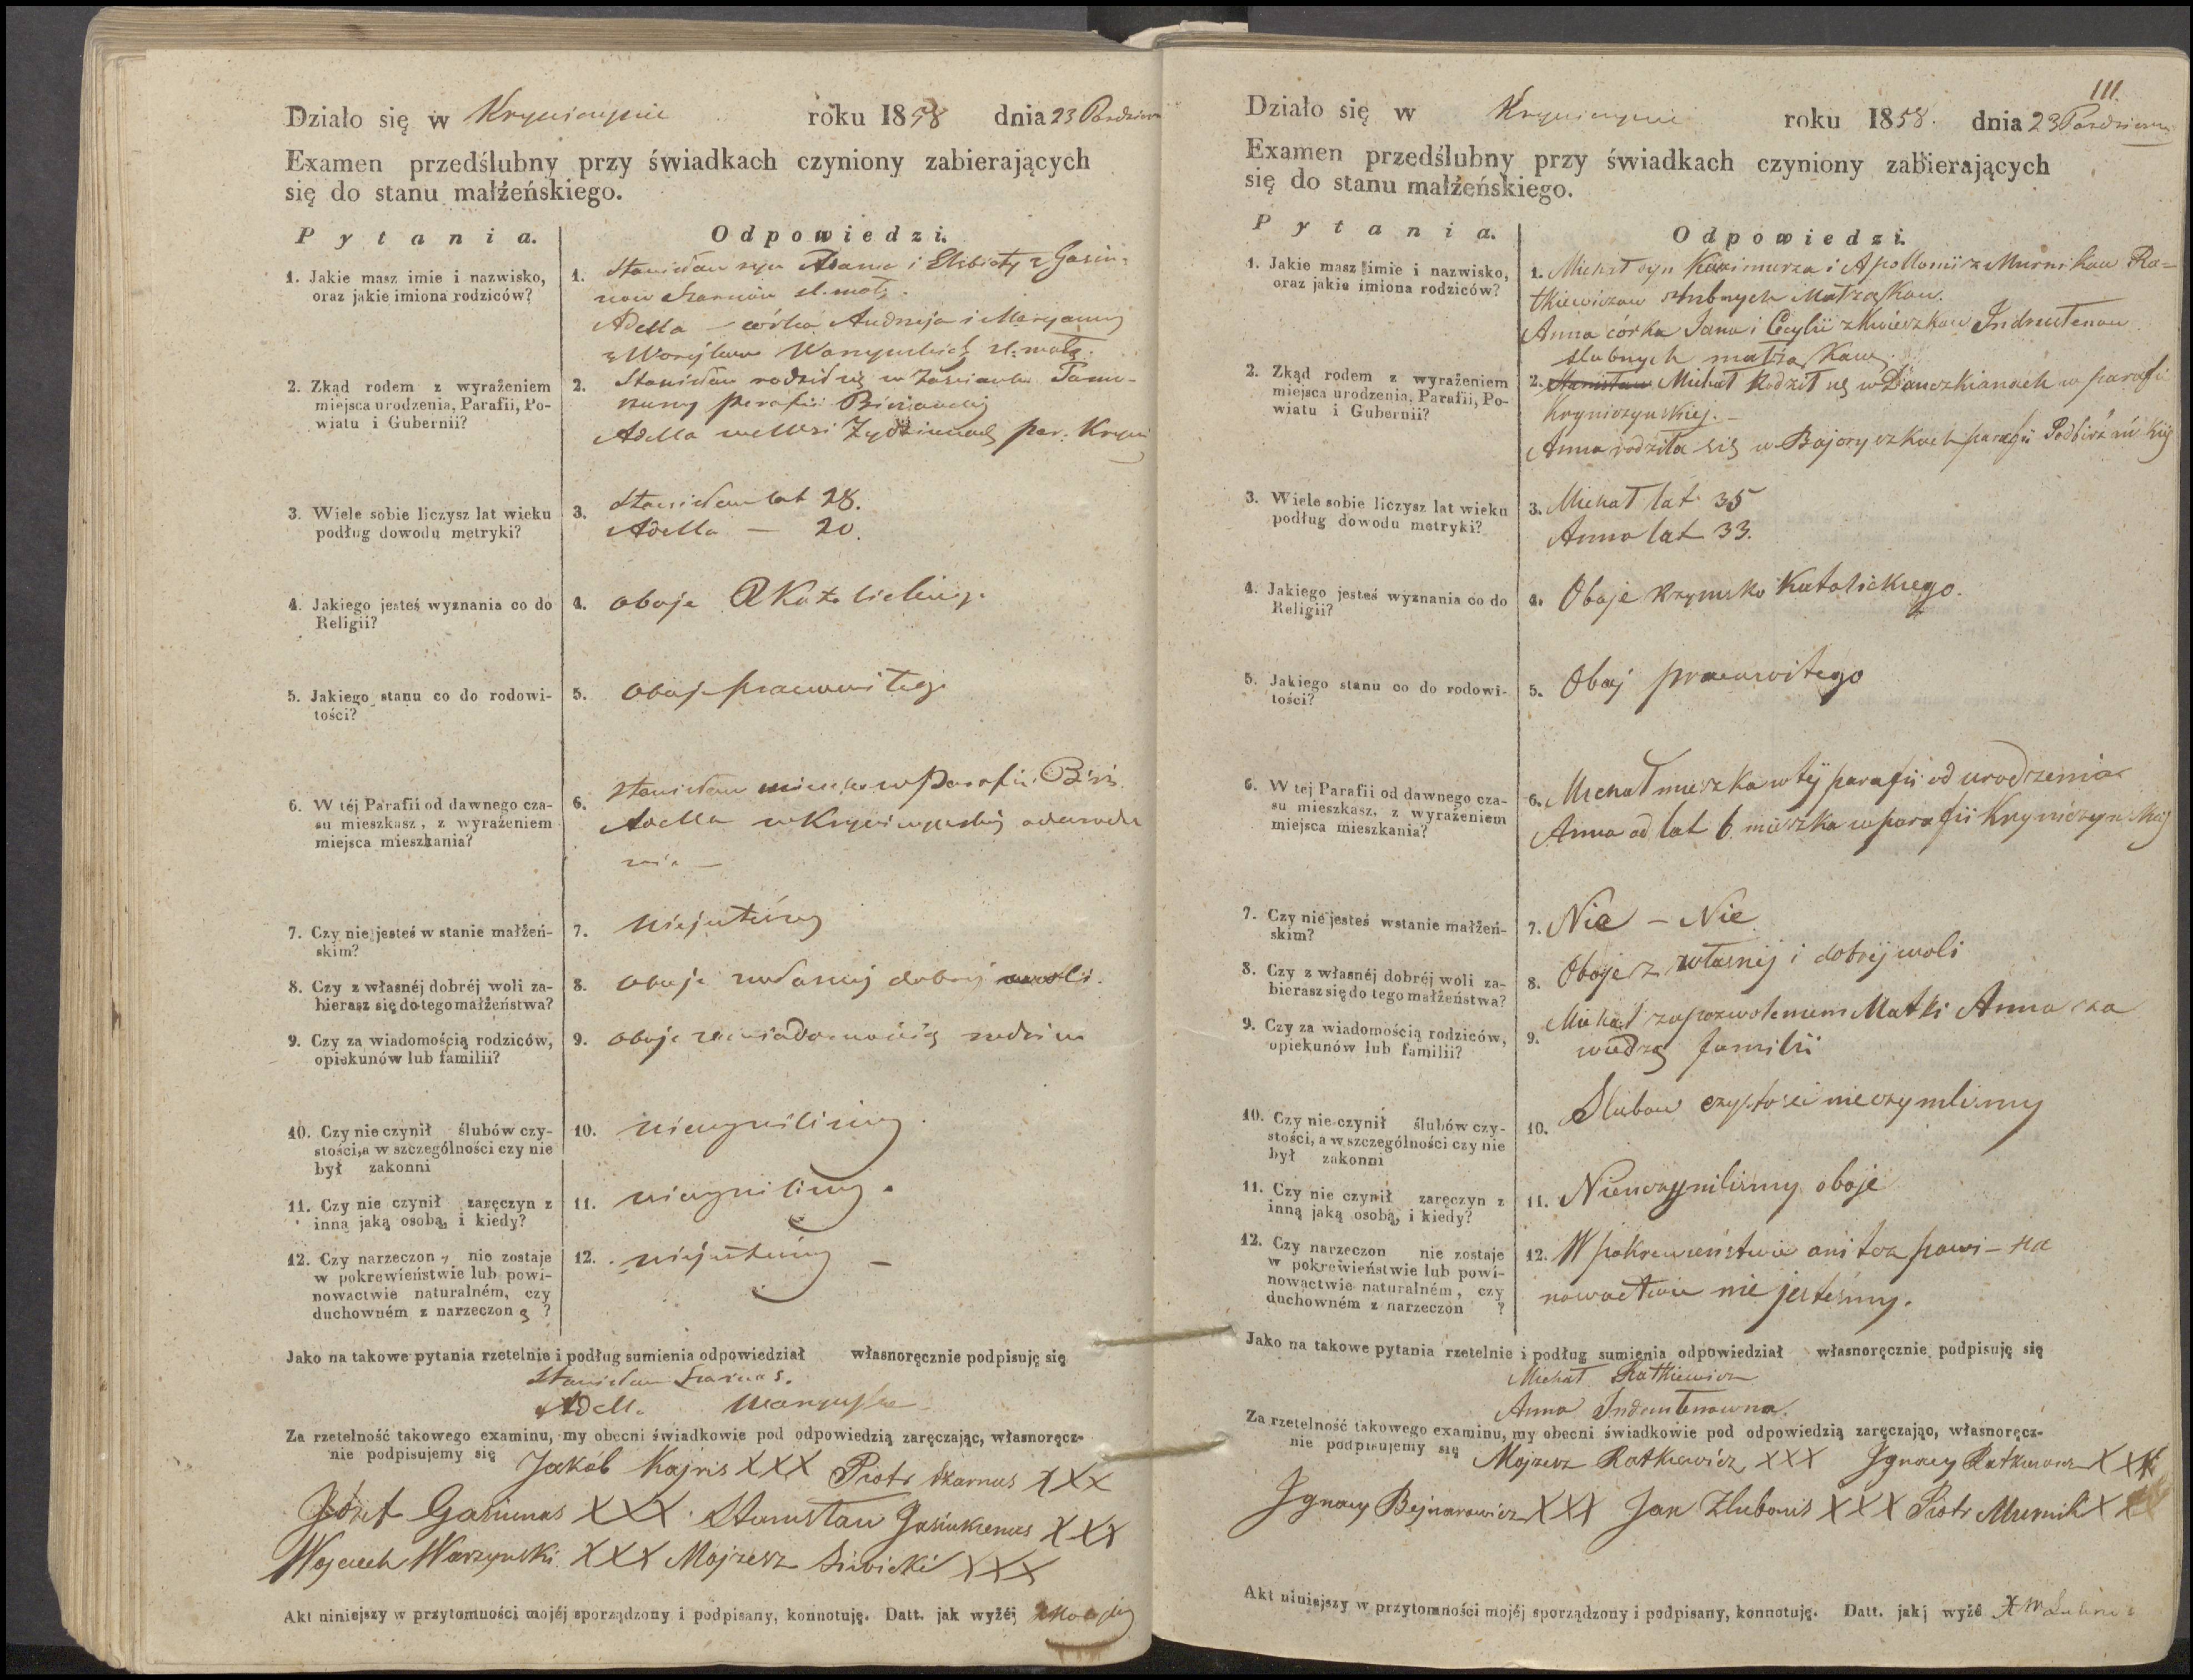 Działo się w Krynicynie roku 1858 dnia 23 Pazdziern
Examen przedślubny przy świadkach czyniony zabierających
się do stanu małżeńskiego.
Pytania. Odpowiedzi.
1. Jakie masz imie i nazwisko,
oraz jakie imiona rodziców?
1. Stanisław syn Adama i Elsbiety z Gasiu-
now
Adella – córka Andrzeja i Maryanny
2. Zkąd rodem z wyrażeniem
miejsca urodzenia, Parafii, Po-
wiatu i Gubernii?
2. Stanisław rodził się w Zaścianku
parafii
Adella we Wsi par. Kryni
3. Wiele sobie liczysz lat wieku
podług dowodu metryki?
3. Stanisław lat 28.
Adella — 20.
4. Jakiego jesteś wyznania co do
Religii?
4. oboje R Katolickiego
5. Jakiego stanu co do rodowi-
tości?
5. oboje pracowitego
6. W téj Parafii od dawnego cza-
su mieszkasz, z wyrażeniem
miejsca mieszkania?
6. Stanisław mieszka w Parafii Birż.
Adella w od urodze
nia —
7. Czy nie jesteś w stanie małżeń-
skim?
7. niejesteśmy
8. Czy z własnéj dobréj woli za-
bierasz się do tego małżeństwa?
8. oboje z własnej dobrej woli.
9. Czy za wiadomością rodziców,
opiekunów lub familii?
9. oboje za wiadomością rodziców
10. Czy nie czynił ślubów czy-
stości, a w szczególności czy nie
był zakonni
10. nieczyniliśmy.
11. Czy nie czynił zaręczyn z
inną jaką osobą, i kiedy?
11. nieczyniliśmy.
12. Czy narzeczon y nie zostaje
w pokrewieństwie lub powi-
nowactwie naturalném, czy
duchowném z narzeczon ą ?
12. niejesteśmy —
Jako na takowe pytania rzetelnie i podług sumienia odpowiedział własnoręcznie podpisuję się
Stanisław
Adella
Za rzetelność takowego examinu, my obecni świadkowie pod odpowiedzią zaręczając, własnoręcz-
nie podpisujemy się Jakób Kajris XXX Piotr Skarnus XXX
Józef Gasiunas XXX Stanisław Jasiukienas XXX
Wojciech Warzynski XXX Mojzesz Siwicki XXX
Akt niniejszy w przytomności mojéj sporządzony i podpisany, konnotuję. Datt. jak wyżéj
111.
Działo się w Krynicynie roku 1858. dnia 23 Pazdziern
Examen przedślubny przy świadkach czyniony zabierających
się do stanu małżeńskiego.
Pytania. Odpowiedzi.
1. Jakie masz imie i nazwisko,
oraz jakie imiona rodziców?
1. Michał syn Kazimierza i Apollonii z Murnikow Ra-
tkiewiczow slubnych Małząskow.
Anna córka Jana i Cecylii z Kwieczkow Indrulenow
slubnych małząskow.
2. Zkąd rodem z wyrażeniem
miejsca urodzenia, Parafii, Po-
wiatu i Gubernii?
2. Stanisław Michał Rodził się w Dauczkianach w parafii
Kryniczynskiej. –
Anna rodziła się w Bajoryszkach parafii Podbirżańskiej
3. Wiele sobie liczysz lat wieku
podług dowodu metryki?
3. Michał lat 35
Anna lat 33.
4. Jakiego jesteś wyznania co do
Religii?
4. Oboje Rzymsko Katolickiego.
5. Jakiego stanu co do rodowi-
tości?
5. Obaj pracowitego
6. W téj Parafii od dawnego cza-
su mieszkasz, z wyrażeniem
miejsca mieszkania?
6. Michał mieszka w tej parafii od urodzenia
Anna od lat 6 mieszka w parafii Kryniczynskiej
7. Czy nie jesteś wstanie małżeń-
skim?
7. Nie – Nie
8. Czy z własnéj dobréj woli za-
bierasz się do tego małżeństwa?
8. Oboje z własnej i dobrej woli
9. Czy za wiadomością rodziców,
opiekunów lub familii?
9. Michał za pozwoleniem Matki Anna za
wiedzą familii
10. Czy nie czynił ślubów czy-
stości, a w szczególności czy nie
był zakonni
10. Slubow czystosci nieczynilismy
11. Czy nie czynił zaręczyn z
inną jaką osobą, i kiedy?
11. Nieuczynilismy oboje
12. Czy narzeczon nie zostaje
w pokrewieństwie lub powi-
nowactwie naturalném, czy
duchowném z narzeczon ?
12. W pokrewieństwie ani tez powi–
nowactwie nie jesteśmy.
Jako na takowe pytania rzetelnie i podług sumienia odpowiedział własnoręcznie podpisuję się
Michał Ratkiewicz
Anna Indrulenowna.
Za rzetelność takowego examinu, my obecni świadkowie pod odpowiedzią zaręczając, własnoręcz-
nie podpisujemy się Mojzesz Ratkiewicz XXX Ignacy Ratkiewicz XXX
Ignacy Bejnarowicz XXX Jan Zlubouis XXX Piotr Murnik XX
Akt niniejszy w przytomności mojéj sporządzony i podpisany, konnotuję. Datt. jakj wyżé